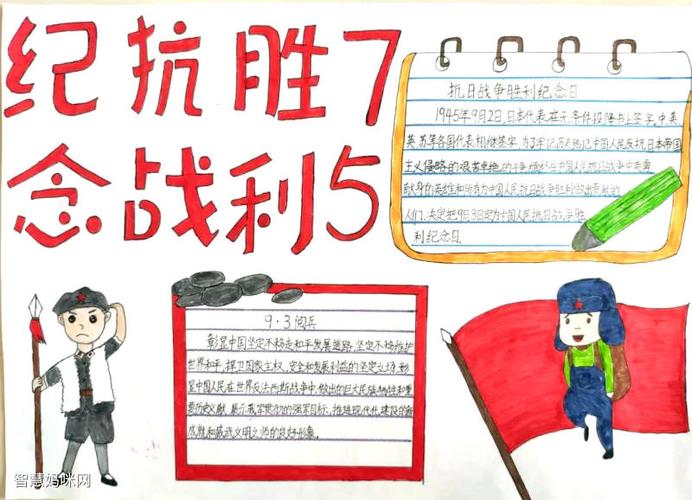 纪抗胜7
念战利5
抗日战争胜利纪念日
1945年9月2日,日本代表在无条件投降书上签字,中美
英苏等各国代表相继签字,为了牢记历史,铭记中国人民反抗日本帝国
主义侵略的艰苦卓绝的斗争,缅怀在中国人民抗日战争中英勇
献身的英雄和所有为中国人民抗日战争胜利做出贡献的
人们,决定把9月3日定为中国人民抗日战争胜
利纪念日.
9·3阅兵
彰显中国坚定不移走和平发展道路,坚定不移维护
世界和平,捍卫国家主权,安全和发展利益的坚定立场,彰
显中国人民在世界反法西斯战争中,做出的巨大民族牺牲和重
要历史贡献,展示我军贯彻的强军目标,推进现代化建设的新
成就和威武文明之师的良好形象.
智慧妈咪网